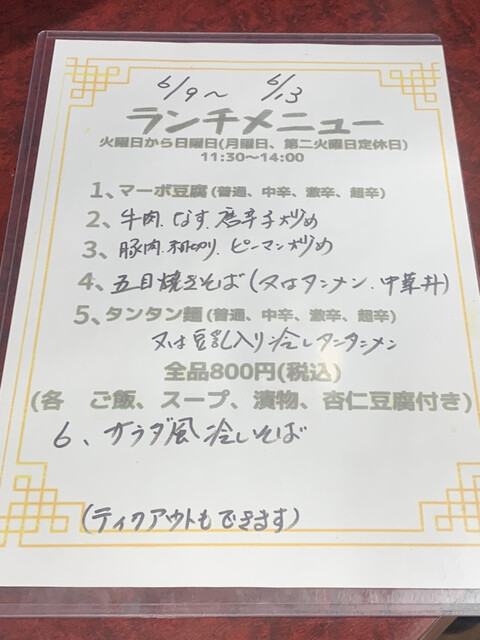 6/9〜 6/13
ランチメニュー
火曜日から日曜日(月曜日、第二火曜日定休日)
11:30~14:00
1、マーボ豆腐(普通、中辛、激辛、超辛)
2、牛肉.なす.唐辛子炒め
3、豚肉.細切り.ピーマン炒め
4、五目焼きそば(又はタンメン.中華丼)
5、タンタン麺(普通、中辛、激辛、超辛)
又は豆乳入り冷しタンタンメン
全品800円(税込)
(各 ご飯、スープ、漬物、杏仁豆腐付き)
6、サラダ風冷しそば
(ティクアウトもできます)